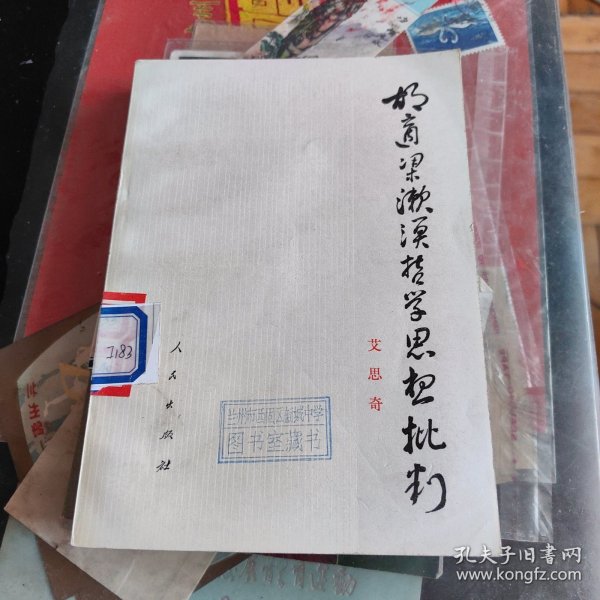 胡適梁漱溟哲学思想批判
艾思奇
人民出版社
I183
兰州市西固区新城中学
图书室藏书
孔夫子旧书网
www.kongfz.com